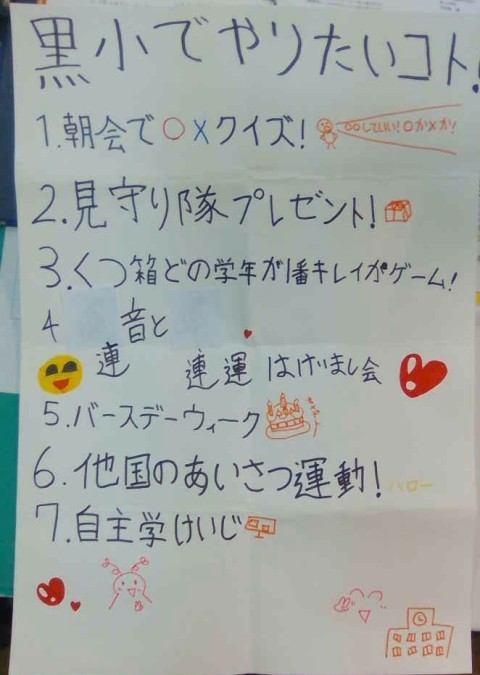 黒小でやりたいコト!
1.朝会で○×クイズ!
○○していい!○か×か!
2.見守り隊プレゼント!
3.くつ箱どの学年が1番キレイかゲーム!
4 音と
連 連運 はげまし会
5.バースデーウィーク
6.他国のあいさつ運動! ハロー
7.自主学けいじ